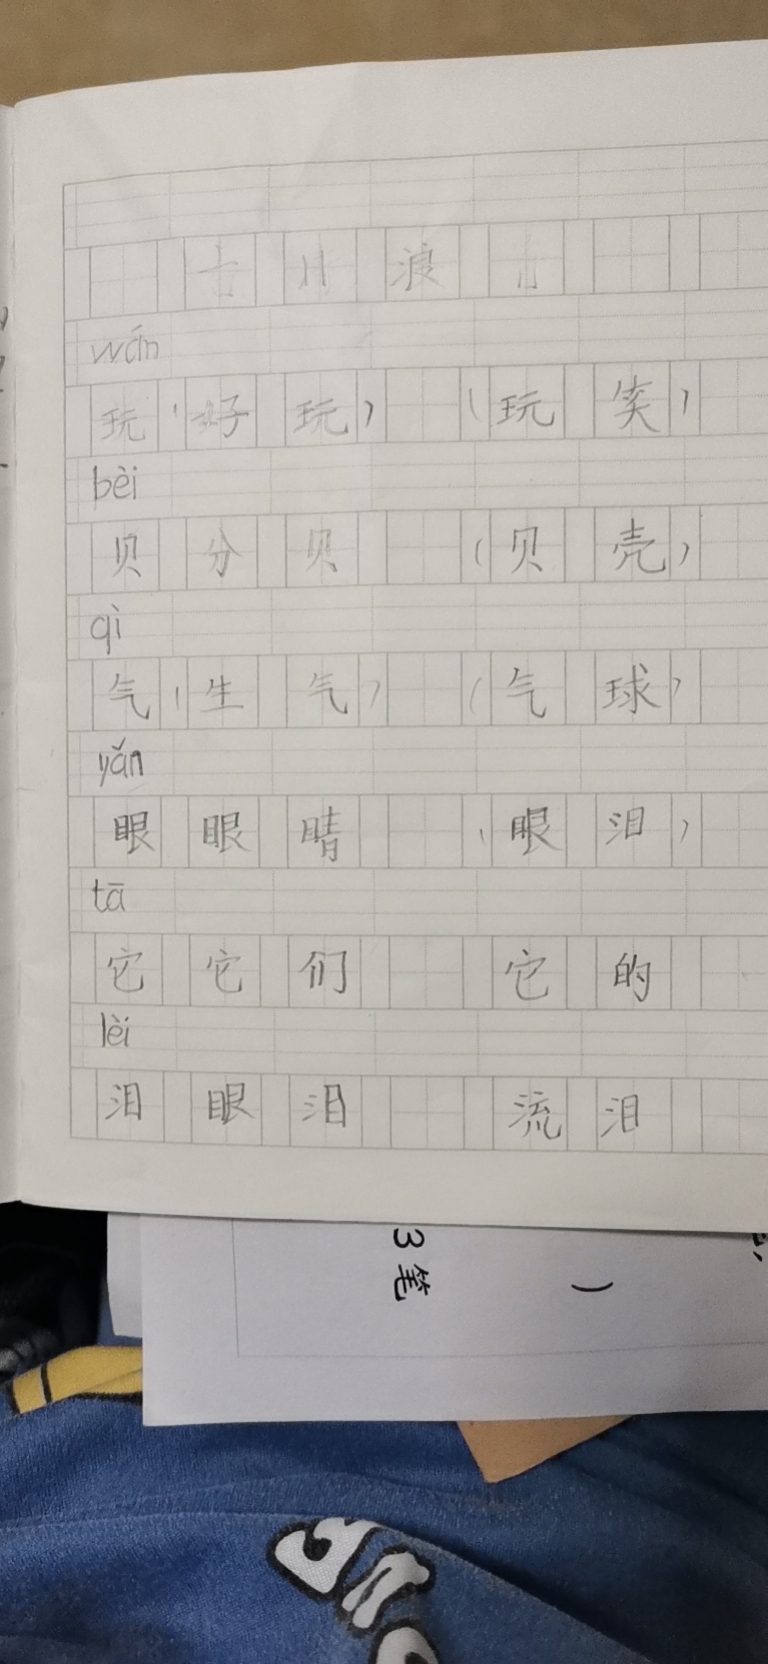 浪
wán
玩(好玩) (玩笑)
bèi
贝 分贝 (贝壳)
qì
气(生气) (气球)
yǎn
眼 眼睛 (眼泪)
tā
它 它们 它的
lèi
泪 眼泪 流泪
3笔 )